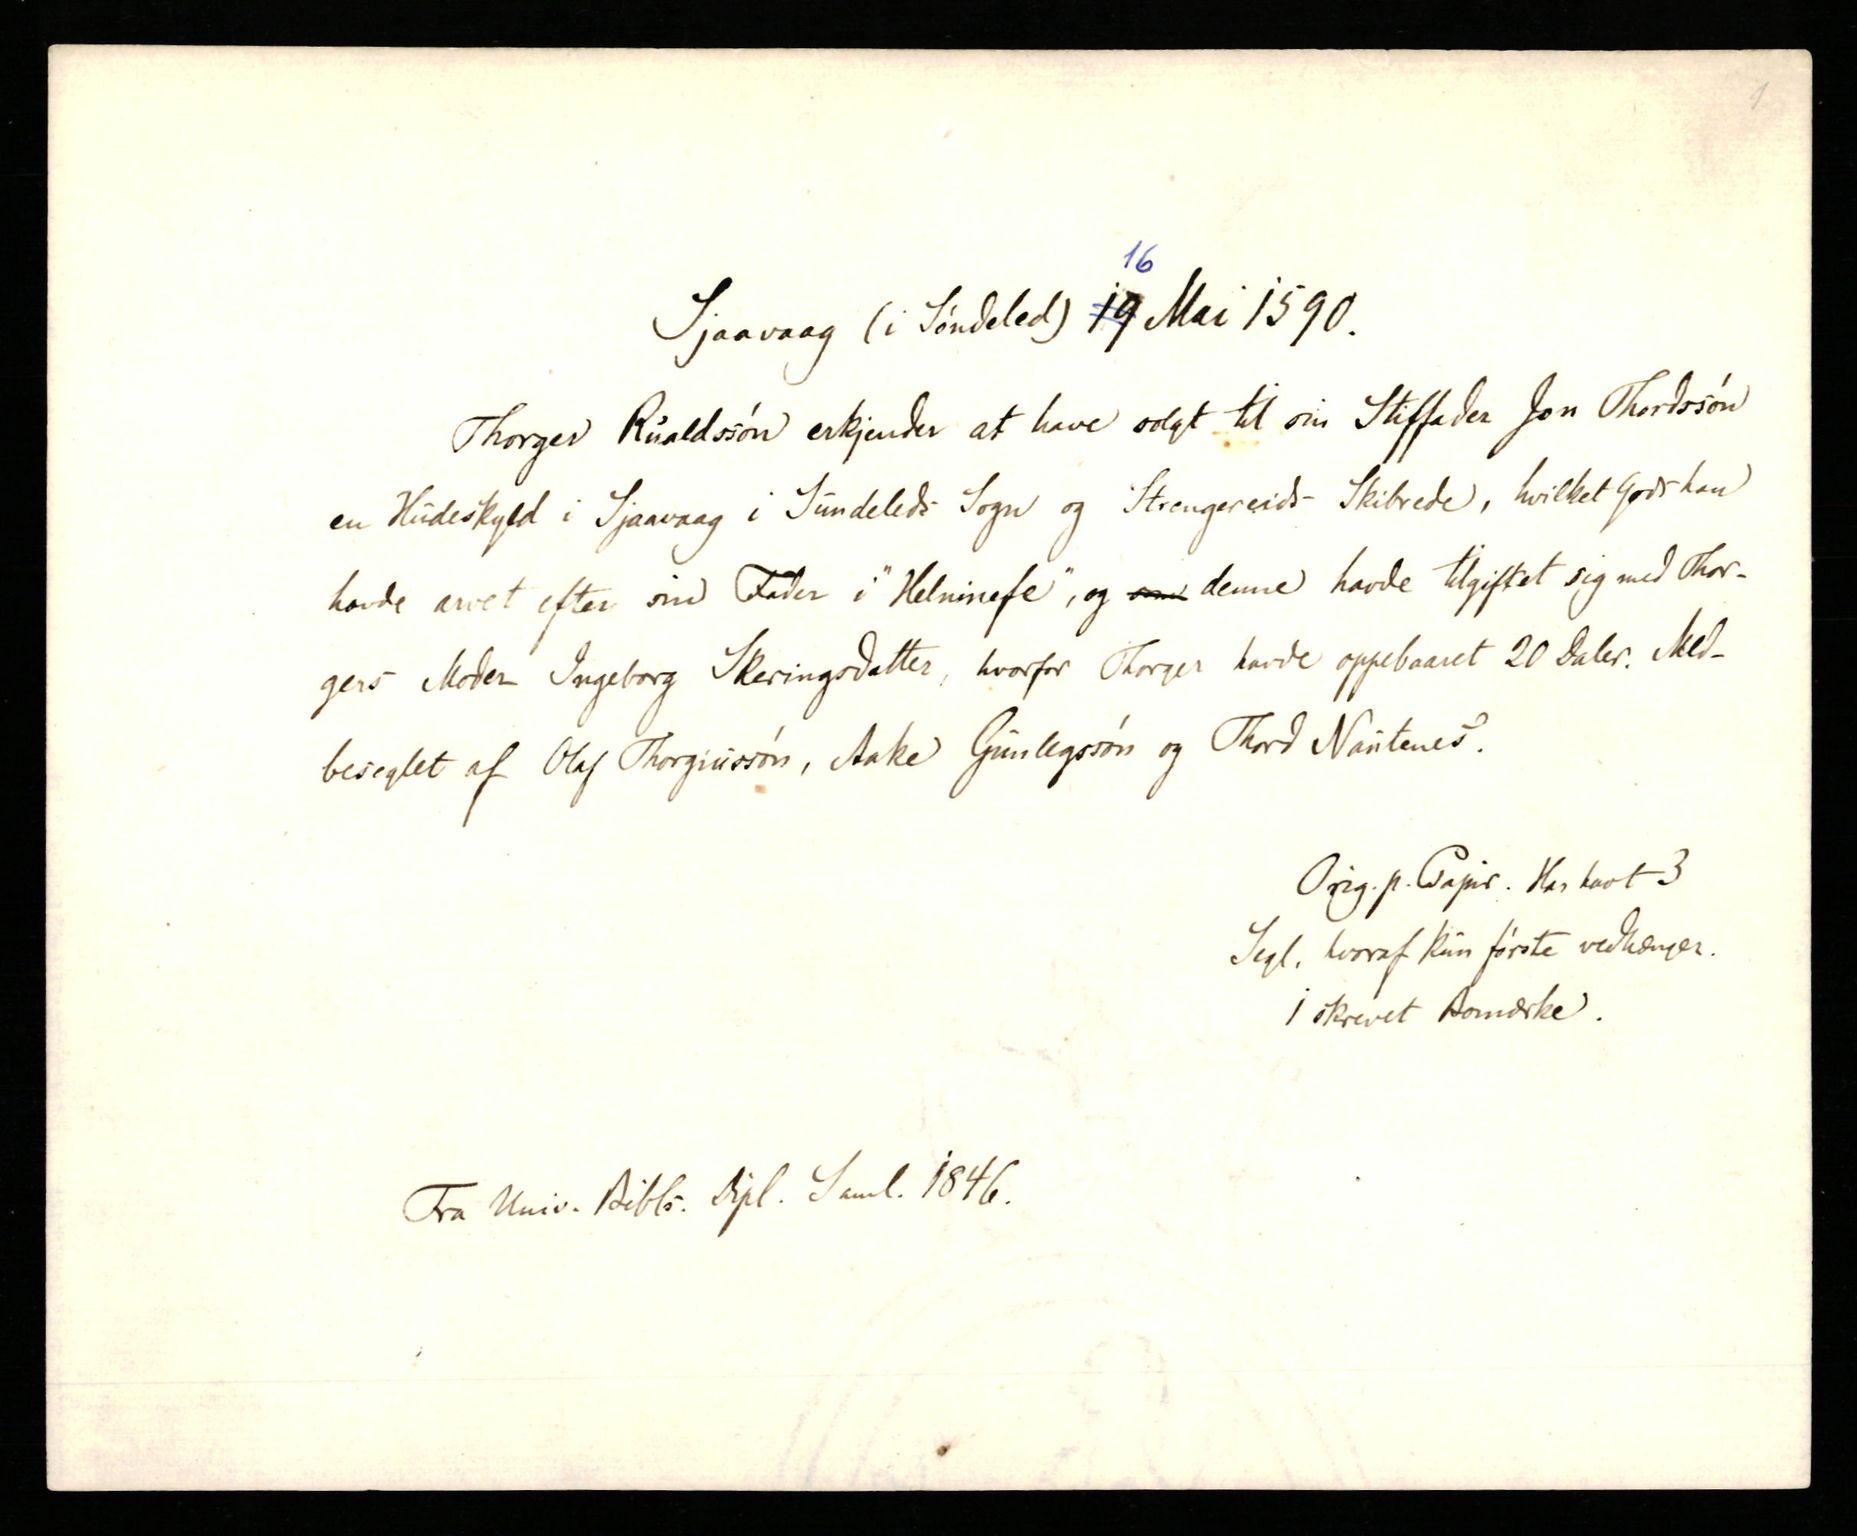 1
16
Sjaavaag (i Söndeled) 19 Mai 1590.
Thorger Rualdssön erkjender at have solgt til sin Stiffader Jon Thordssön
en Hudeskyld i Sjaavaag i Sundeleds Sogn og Strengereids Skibrede, hvilket Gods han
havde arvet efter sin Fader i "Helninefe", og som denne havde tilgiftet sig med Thor-
gers Moder Ingeborg Skeringsdatter, hvorfor Thorger havde oppebaaret 20 Daler. Med-
beseglet af Olaf Thorgiussön, Aake Gunlegssön og Thord Nautenes.
Orig. p. Papir. Har havt 3
Segl, hvoraf kun förste vedhænger.
1 skrevet Bomærke.
Fra Univ. Bibls. Dipl. Saml. 1846.